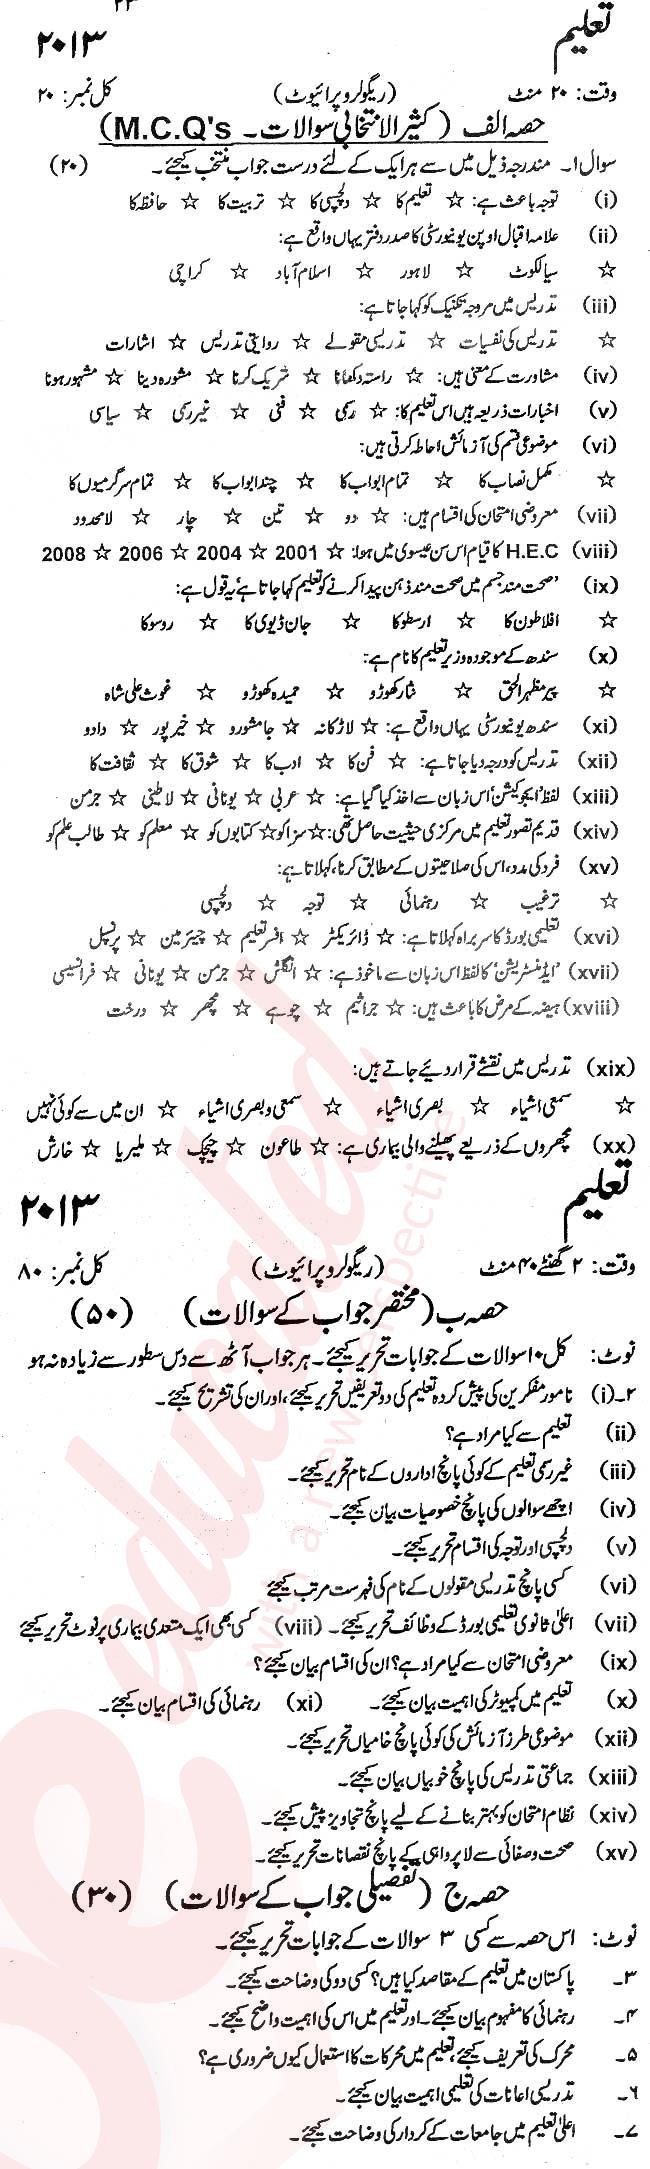 ۲۳
تعلیم ۲۰۱۳
وقت: ۲۰ منٹ (ریگولر و پرائیوٹ) کل نمبر: ۲۰
حصہ الف (کثیر الانتخابی سوالات ۔ M.C.Q's)
سوال ۱۔ مندرجہ ذیل میں سے ہر ایک کے لئے درست جواب منتخب کیجئے۔ (۲۰)
(i) توجہ باعث ہے: ☆ تعلیم کا ☆ دلچسپی کا ☆ تربیت کا ☆ حافظہ کا
(ii) علامہ اقبال اوپن یونیورسٹی کا صدر دفتر یہاں واقع ہے:
☆ سیالکوٹ ☆ لاہور ☆ اسلام آباد ☆ کراچی
(iii) تدریس میں مروجہ تکنیک کو کہا جاتا ہے:
☆ تدریس کی نفسیات ☆ تدریسی مقولے ☆ روایتی تدریس ☆ اشارات
(iv) مشاورت کے معنی ہیں: ☆ راستہ دکھانا ☆ شریک کرنا ☆ مشورہ دینا ☆ مشہور ہونا
(v) اخبارات ذریعہ ہیں اس تعلیم کا: ☆ رسمی ☆ فنی ☆ غیر رسمی ☆ سیاسی
(vi) موضوعی قسم کی آزمائش احاطہ کرتی ہیں:
☆ مکمل نصاب کا ☆ تمام ابواب کا ☆ چند ابواب کا ☆ تمام سرگرمیوں کا
(vii) معروضی امتحان کی اقسام ہیں: ☆ دو ☆ تین ☆ چار ☆ لامحدود
(viii) H.E.C کا قیام اس سن عیسوی میں ہوا: ☆ 2001 ☆ 2004 ☆ 2006 ☆ 2008
(ix) 'صحت مند جسم میں صحت مند ذہن پیدا کرنے کو تعلیم کہا جاتا ہے' یہ قول ہے:
☆ افلاطون کا ☆ ارسطو کا ☆ جان ڈیوی کا ☆ روسو کا
(x) سندھ کے موجودہ وزیر تعلیم کا نام ہے:
☆ پیر مظہر الحق ☆ نثار کھوڑو ☆ حمیدہ کھوڑو ☆ غوث علی شاہ
(xi) سندھ یونیورسٹی یہاں واقع ہے: ☆ لاڑکانہ ☆ جامشورو ☆ خیرپور ☆ دادو
(xii) تدریس کو درجہ دیا جاتا ہے: ☆ فن کا ☆ ادب کا ☆ شوق کا ☆ ثقافت کا
(xiii) لفظ 'ایجوکیشن' اس زبان سے اخذ کیا گیا ہے: ☆ عربی ☆ یونانی ☆ لاطینی ☆ جرمن
(xiv) قدیم تصور تعلیم میں مرکزی حیثیت حاصل تھی: ☆ سزا کو ☆ کتابوں کو ☆ معلم کو ☆ طالب علم کو
(xv) فرد کی مدد، اس کی صلاحیتوں کے مطابق کرنا، کہلاتا ہے:
☆ ترغیب ☆ رہنمائی ☆ توجہ ☆ دلچسپی
(xvi) تعلیمی بورڈ کا سربراہ کہلاتا ہے: ☆ ڈائریکٹر ☆ افسر تعلیم ☆ چیئرمین ☆ پرنسپل
(xvii) 'ایڈمنسٹریشن' کا لفظ اس زبان سے ماخوذ ہے: ☆ انگلش ☆ جرمن ☆ یونانی ☆ فرانسیسی
(xviii) ہیضہ کے مرض کا باعث ہیں: ☆ جراثیم ☆ چوہے ☆ مچھر ☆ درخت
(xix) تدریس میں نقشے قرار دیئے جاتے ہیں:
☆ سمعی اشیاء ☆ بصری اشیاء ☆ سمعی و بصری اشیاء ☆ ان میں سے کوئی نہیں
(xx) مچھروں کے ذریعے پھیلنے والی بیماری ہے: ☆ طاعون ☆ چیچک ☆ ملیریا ☆ خارش
تعلیم ۲۰۱۳
وقت: ۲ گھنٹے ۴۰ منٹ (ریگولر و پرائیوٹ) کل نمبر: ۸۰
حصہ ب (مختصر جواب کے سوالات) (۵۰)
نوٹ: کل ۱۰ سوالات کے جوابات تحریر کیجئے۔ ہر جواب آٹھ سے دس سطور سے زیادہ نہ ہو
۲۔(i) نامور مفکرین کی پیش کردہ تعلیم کی دو تعریفیں تحریر کیجئے، اور ان کی تشریح کیجئے۔
(ii) تعلیم سے کیا مراد ہے؟
(iii) غیر رسمی تعلیم کے کوئی پانچ اداروں کے نام تحریر کیجئے۔
(iv) اچھے سوالوں کی پانچ خصوصیات بیان کیجئے۔
(v) دلچسپی اور توجہ کی اقسام تحریر کیجئے۔
(vi) کسی پانچ تدریسی مقولوں کے نام کی فہرست مرتب کیجئے
(vii) اعلیٰ ثانوی تعلیمی بورڈ کے وظائف تحریر کیجئے۔ (viii) کسی بھی ایک متعدی بیماری پر نوٹ تحریر کیجئے
(ix) معروضی امتحان سے کیا مراد ہے؟ ان کی اقسام بیان کیجئے؟
(x) تعلیم میں کمپیوٹر کی اہمیت بیان کیجئے۔ (xi) رہنمائی کی اقسام بیان کیجئے۔
(xii) موضوعی طرز آزمائش کی کوئی پانچ خامیاں تحریر کیجئے۔
(xiii) جماعتی تدریس کی پانچ خوبیاں بیان کیجئے۔
(xiv) نظام امتحان کو بہتر بنانے کے لیے پانچ تجاویز پیش کیجئے۔
(xv) صحت و صفائی سے لاپرواہی کے پانچ نقصانات تحریر کیجئے۔
حصہ ج (تفصیلی جواب کے سوالات) (۳۰)
نوٹ: اس حصہ سے کسی ۳ سوالات کے جوابات تحریر کیجئے۔
۳۔ پاکستان میں تعلیم کے مقاصد کیا ہیں؟ کسی دو کی وضاحت کیجئے۔
۴۔ رہنمائی کا مفہوم بیان کیجئے۔ اور تعلیم میں اس کی اہمیت واضح کیجئے۔
۵۔ محرک کی تعریف کیجئے، تعلیم میں محرکات کا استعمال کیوں ضروری ہے؟
۶۔ تدریسی اعانات کی تعلیمی اہمیت بیان کیجئے۔
۷۔ اعلیٰ تعلیم میں جامعات کے کردار کی وضاحت کیجئے۔
educated
with a new perspective